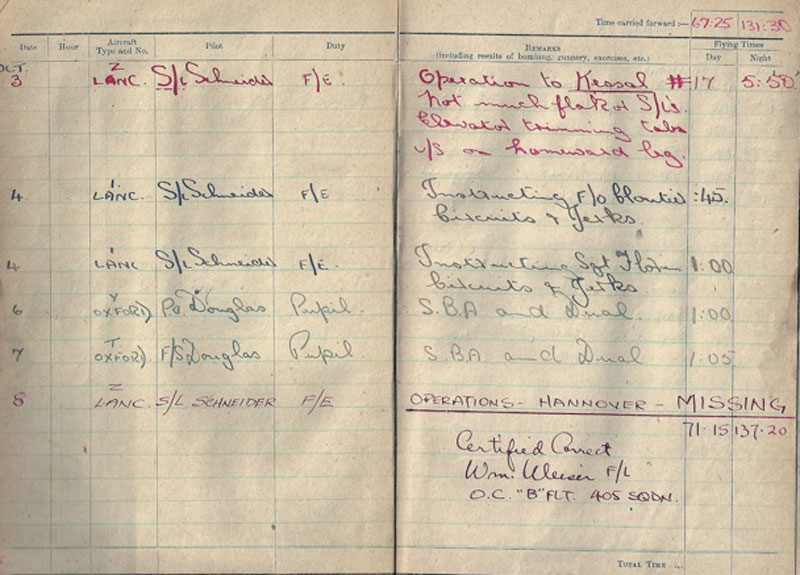 Time carried forward :— 67·25 131·30
Date Hour Aircraft Type and No. Pilot Duty REMARKS (including results of bombing, gunnery, exercises, etc.) Flying Times Day Night
OCT 3 Z LANC. S/L Schneider F/E Operation to Kassal #17 5:50
Not much flak or S/L's.
Elevator trimming tabs
u/s on homeward leg.
4 LANC. S/L Schneider F/E Instructing F/O :45.
&
4 LANC S/L Schneider F/E. Instructing Sgt 1:00
&
6 Y OXFORD. Douglas Pupil. S.B.A and Dual. 1:00
7 T OXFORD. F/S. Douglas Pupil S.B.A and Dual 1:05
8 Z LANC. S/L SCHNEIDER F/E OPERATIONS - HANNOVER - MISSING
71·15 137·20
Certified Correct
Wm. F/L
O.C. "B" FLT. 405 SQDN.
TOTAL TIME ...